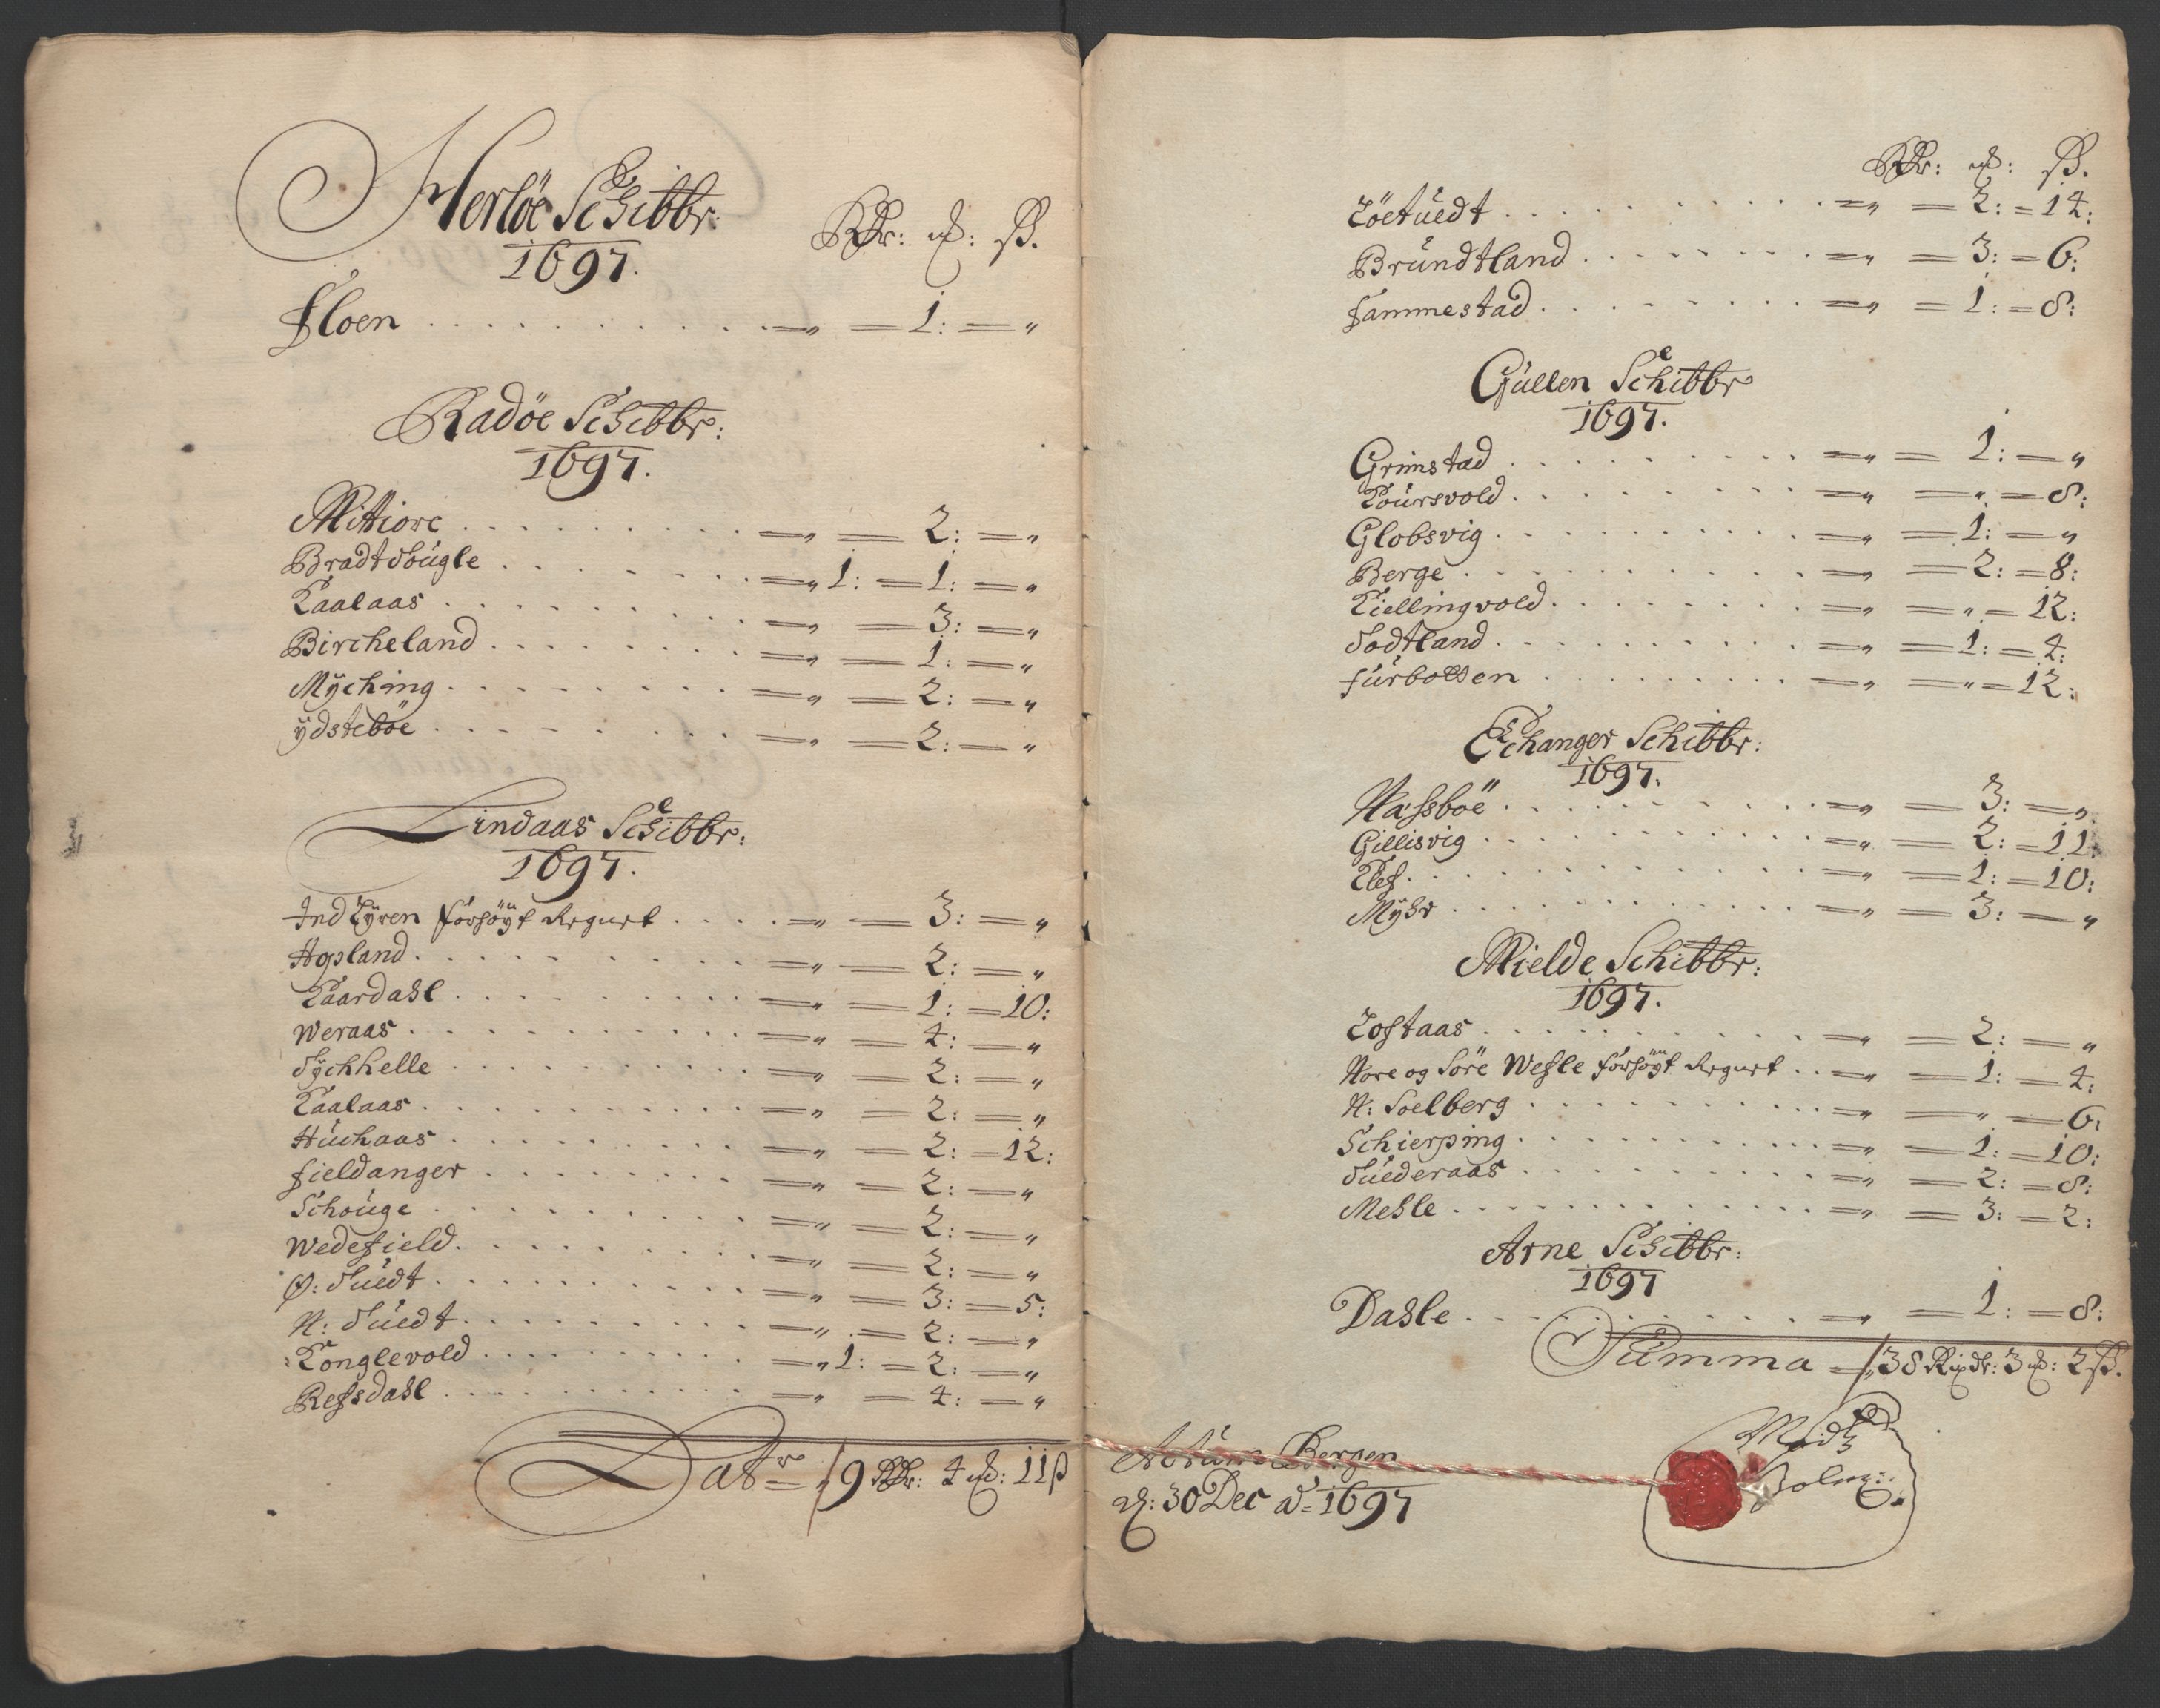 Herlöe Schibbr:
1697.
Rdr: mk: ß.
Floen . . . . =„ = 1: = „
Radöe Schibbr:
1697.
Mittiore . . . . =„ = 2: = „
Bradtschougle . . . . =„ 1: = 1: = „
Kaalaas . . . . =„ = 3: = „
Bircheland . . . . =„ = 1: = „
Mÿching . . . . =„ = 2: = „
ÿdsteböe . . . . =„ = 2: = „
Lindaas Schibbr:
1697.
Ind Kÿren forhöÿt . . . . =„ = 3: = „
Hopland . . . . =„ = 2: = „
Kaardahl . . . . =„ = 1: = 10:
Weraas . . . . =„ = 4: = „
Sÿchhelle . . . . =„ = 2: = „
Kaalaas . . . . =„ = 2: = „
Huchaas . . . . =„ = 2: = 12:
fieldanger . . . . =„ = 2: = „
Schouge . . . . =„ = 2: = „
Wedefield . . . . =„ = 2: = „
Ø: Tuedt . . . . =„ = 3: = 5:
N: Tuedt . . . . =„ = 2: = „
Konglevold . . . . =„ 1: = 2: = „
Refsdahl . . . . =„ = 4: = „
Latr = 19 Rdr: 4 mk: 11 ß
Rdr: mk: ß.
Löetuedt . . . . =„ = 2: = 14:
Brundtland . . . . =„ = 3: = 6:
fammestad . . . . =„ = 1: = 8:
Gullen Schibbr
1697.
Grimstad . . . . =„ = 1: = „
Koursvold . . . . =„ = „ = 8:
Globsvig . . . . =„ = 1: = „
Berge . . . . =„ = 2: = 8:
Kiellingvold . . . . =„ = „ = 12:
Sodtland . . . . =„ = 1: = 4:
furbotten . . . . =„ = „ = 12:
Echanger Schibbr:
1697.
Nassböe . . . . =„ = 3: = „
Gillisvig . . . . =„ = 2: = 11:
. . . . =„ = 1: = 10:
Mÿhr . . . . =„ = 3: = „
Mielde Schibbr:
1697.
Loftaas . . . . =„ = 2: = „
Nore og Söre Wefle forhöÿt . . =„ = 1: = 4:
N: Soelberg . . . . =„ = „ = 6:
Schierping . . . . =„ = 1: = 10:
Tuederaas . . . . =„ = 2: = 8:
Mehle . . . . =„ = 3: = 2:
Arne Schibbr:
1697
Dahle . . . . =„ = 1: = 8:
Summa = 38 Rixdr: 3 mk: 2 ß.
Actum Bergen
d: 30 Dec ao = 1697